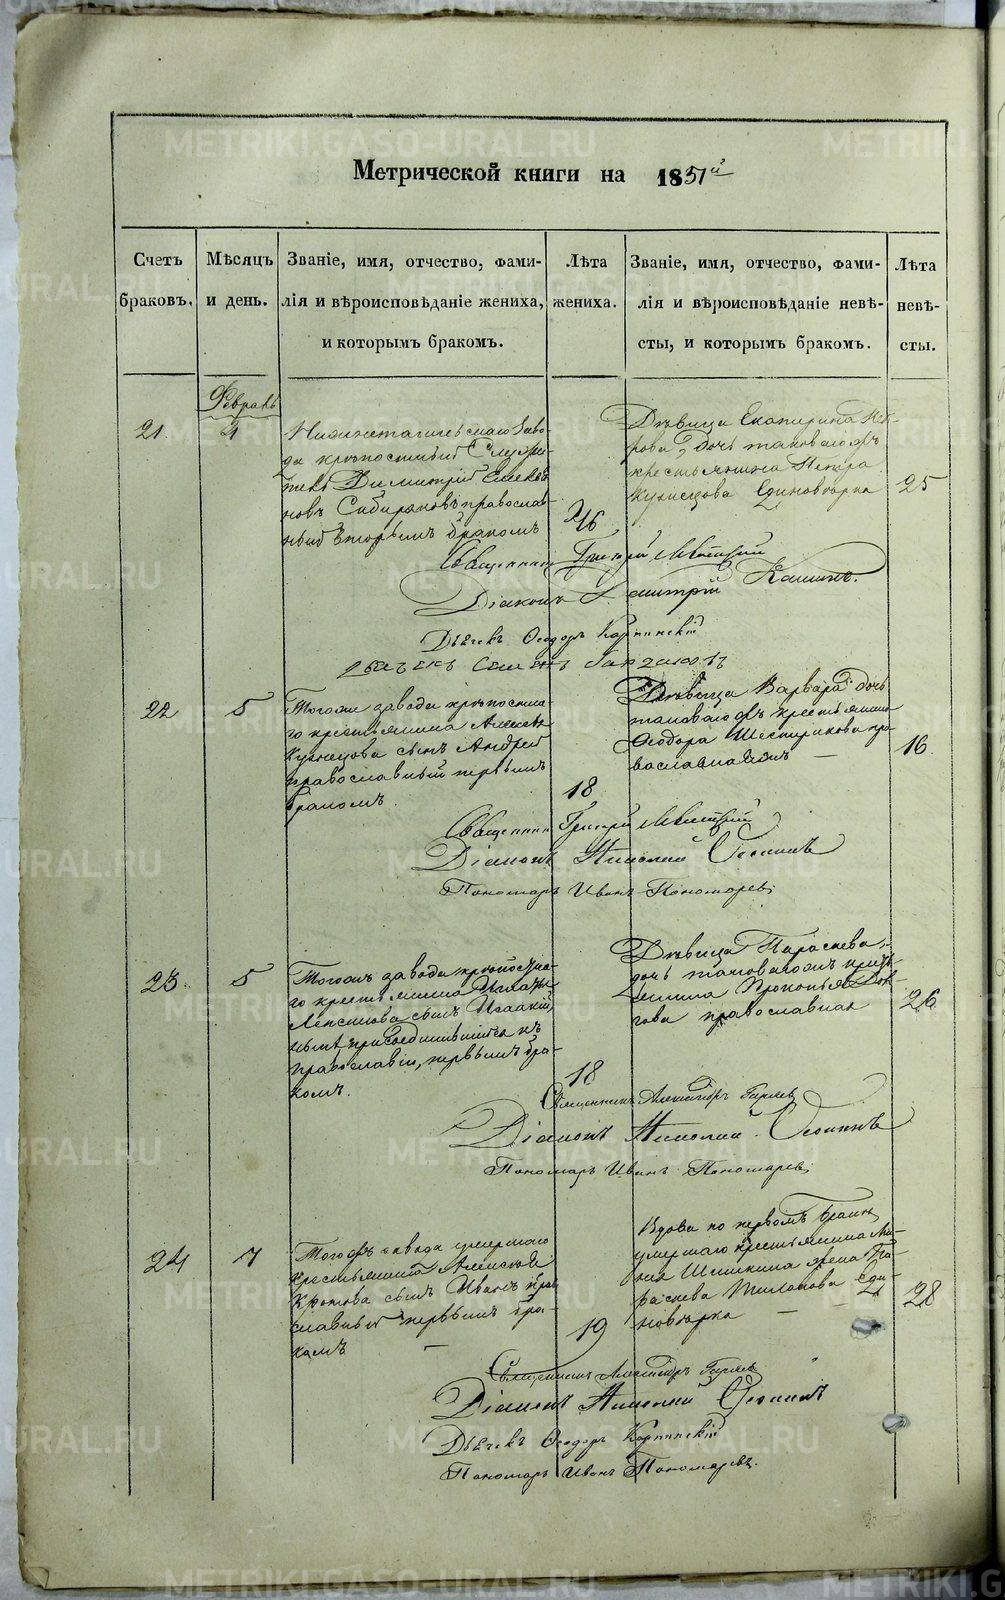 Метрической книги на 1851й
Счетъ браковъ.
Мѣсяцъ и день.
Званіе, имя, отчество, фами-
лія и вѣроисповѣданіе жениха,
и которымъ бракомъ.
Лѣта жениха.
Званіе, имя, отчество, фами-
лія и вѣроисповѣданіе невѣ-
сты, и которымъ бракомъ.
Лѣта невѣ-
сты.
Февраль
21
4
Нижнетагильскаго заво-
да крѣпостный Служи-
тель Димитрій
новъ Сибиряковъ православ-
ный вторымъ бракомъ
26
Дѣвица Екатерина Пет-
рова, дочь таковагожъ
крестьянина Петра
Кузнецова Единовѣрка
25
Священникъ Григорій
Діаконъ Димитрій Кашинъ.
Дьячекъ Ѳеодоръ Карпинскій
Дьячекъ Семенъ
22
5
Тогоже завода крѣпостна-
го крестьянина Алексѣя
Кузнецова сынъ Андрей
православный первымъ
бракомъ.
18
Дѣвица Варвара дочь
таковагожъ крестьянина
Ѳеодора Шестерикова пра-
вославная
16
Священникъ Григорій
Діаконъ Николай Осининъ
Пономарь Иванъ Пономаревъ
23
5
Тогожъ завода крѣпостна-
го крестьянина
сынъ Исаакій,
нынѣ присоединившійся къ
православію, первымъ бра-
комъ.
18
Дѣвица Параскева,
дочь таковагожъ кресть-
янина Прокопья
гова православная
26
Священникъ Александръ
Діаконъ Николай Осининъ
Пономарь Иванъ Пономаревъ
24
7
Тогожъ завода умершаго
крестьянина Алексѣя
Кротова сынъ Иванъ пра-
славный первымъ бра-
комъ
19
Вдова по первомъ бракѣ,
умершаго крестьянина
Шишкина жена Па-
раскева Единовѣрка
28
Священникъ Александръ
Діаконъ Николай Осининъ
Дьячекъ Ѳеодоръ Карпинскій
Пономарь Иванъ Пономаревъ.
METRIKI.GASO-URAL.RU